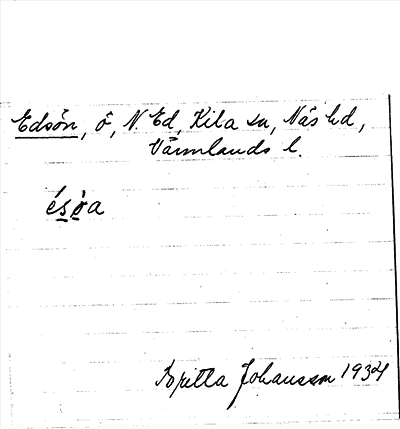 Edsön, ö, N. Ed, Kila sn, Näs hd,
Värmlands l.
ésòa
Britta Johansson 1934